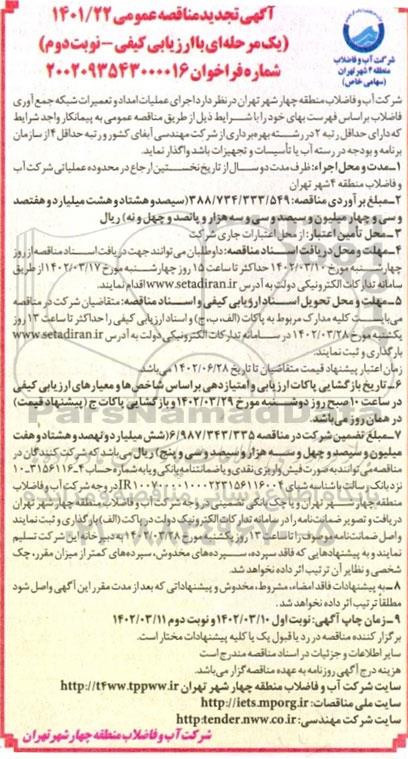 آگهی تجدید مناقصه عمومی ۱۴۰۱/۲۲
(یک مرحله‌ای با ارزیابی کیفی – نوبت دوم)
شماره فراخوان ۲۰۰۲۰۹۳۵۴۳۰۰۰۰۱۶
شرکت آب و فاضلاب
منطقه ۴ شهر تهران
(سهامی خاص)
شرکت آب و فاضلاب منطقه چهار شهر تهران در نظر دارد اجرای عملیات امداد و تعمیرات شبکه جمع آوری
فاضلاب براساس فهرست بهای خود را با شرایط ذیل از طریق مناقصه عمومی به پیمانکار واجد شرایط
که دارای حداقل رتبه ۲ در رشته بهره‌برداری از شرکت مهندسی آبفای کشور و رتبه حداقل ۴ از سازمان
برنامه و بودجه در رسته آب یا تأسیسات و تجهیزات باشد واگذار نماید.
۱-مدت و محل اجراء: ظرف مدت دو سال از تاریخ نخستین ارجاع در محدوده عملیاتی شرکت آب
و فاضلاب منطقه ۴ شهر تهران
۲-مبلغ برآوردی مناقصه: ۳۸۸/۷۳۴/۳۳۳/۵۴۹(سیصد و هشتاد و هشت میلیارد و هفتصد
و سی و چهار میلیون و سیصد و سی و سه هزار و پانصد و چهل و نه) ریال
۳-محل تأمین اعتبار: از محل اعتبارات جاری شرکت
۴-مهلت و محل دریافت اسناد مناقصه: داوطلبان می‌توانند جهت دریافت اسناد مناقصه از روز
چهارشنبه مورخ ۱۴۰۲/۰۳/۱۰ حداکثر تا ساعت ۱۵ روز چهارشنبه مورخ ۱۴۰۲/۰۳/۱۷ از طریق
سامانه تدارکات الکترونیکی دولت به آدرس www.setadiran.ir اقدام نمایند.
۵-مهلت و محل تحویل اسناد ارزیابی کیفی و اسناد مناقصه: متقاضیان شرکت در مناقصه
می‌بایست کلیه مدارک مربوط به پاکات (الف، ب، ج) و اسناد ارزیابی کیفی را حداکثر تا ساعت ۱۳ روز
یکشنبه مورخ ۱۴۰۲/۰۳/۲۸ در سامانه تدارکات الکترونیکی دولت به آدرس www.setadiran.ir
بارگذاری و ثبت نمایند.
زمان اعتبار پیشنهاد قیمت متقاضیان تا تاریخ ۱۴۰۲/۰۶/۲۸ می‌باشد
۶-تاریخ بازگشایی پاکات ارزیابی و امتیازدهی براساس شاخص‌ها و معیارهای ارزیابی کیفی
در ساعت ۱۰ صبح روز دوشنبه مورخ ۱۴۰۲/۰۳/۲۹ و بازگشایی پاکات ج (پیشنهاد قیمت)
در همان روز می‌باشد.
۷-مبلغ تضمین شرکت در مناقصه ۶/۹۸۷/۳۴۳/۳۳۵(شش میلیارد و نهصد و هشتاد و هفت
میلیون و سیصد و چهل و سه هزار و سیصد و سی و پنج) ریال می‌باشد که شرکت کنندگان در
مناقصه می‌توانند به صورت فیش واریزی نقدی و یا ضمانتنامه بانکی و یا به شماره حساب
نزد بانک رسالت با شناسه شبای در وجه شرکت آب و فاضلاب
منطقه چهار شهر تهران و یا چک بانکی تضمینی در وجه شرکت آب و فاضلاب منطقه چهار شهر تهران
دریافت و تصویر ضمانت‌نامه را در سامانه تدارکات الکترونیک دولت در پاکت (الف) بارگذاری و ثبت نمایند
واصل ضمانت‌نامه موصوف را تا ساعت ۱۳ روز یکشنبه مورخ به دبیرخانه شرکت تسلیم
نمایند و به پیشنهادهایی که فاقد سپرده، سپرده‌های مخدوش، سپرده‌های کمتر از میزان مقرر، چک
شخصی و نظایر آن ترتیب اثر داده نخواهد شد.
۸-به پیشنهادات فاقد امضاء، مشروط، مخدوش و پیشنهاداتی که بعد از مدت مقرر این آگهی واصل شود
مطلقا ترتیب اثر داده نخواهد شد.
۹-زمان چاپ آگهی: نوبت اول ۱۴۰۲/۰۳/۱۰ و نوبت دوم ۱۴۰۲/۰۳/۱۱
برگزار کننده مناقصه در رد یا قبول یک یا کلیه پیشنهادات مختار است.
سایر اطلاعات و جزئیات در اسناد مناقصه مندرج است
هزینه درج آگهی روزنامه به عهده مناقصه گزار می‌باشد.
سایت شرکت آب و فاضلاب منطقه چهار شهر تهران http://t4ww.tppww.ir
سایت ملی مناقصات: http://iets.mporg.ir
سایت شرکت مهندسی: http:tender.nww.co.ir
شرکت آب و فاضلاب منطقه چهار شهر تهران